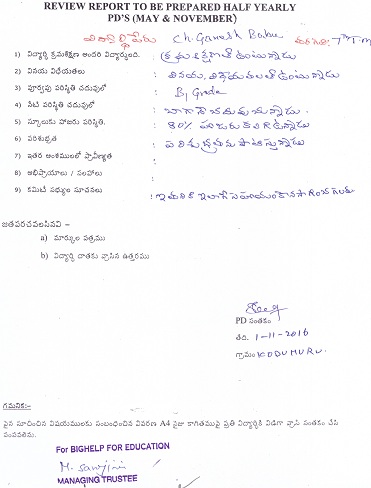 REVIEW REPORT TO BE PREPARED HALF YEARLY
PD'S (MAY & NOVEMBER)
విద్యార్థి పేరు Ch. Ganesh Babu తరగతి: 7th T.M
1) విద్యార్థి క్రమశిక్షణ అందరి విద్యార్థుంది. : క్రమశిక్షణతో ఉంటున్నాడు
2) వినయ విధేయతలు : వినయ, విధేయతలతో ఉంటున్నాడు
3) పూర్వపు పరిస్థితి చదువులో : B1 Grade
4) నేటి పరిస్థితి చదువులో : బాగానే చదువుచున్నాడు
5) స్కూలుకు హాజరు పరిస్థితి. : 80%
6) పరిశుభ్రత : పరిశుభ్రతను పాటిస్తున్నాడు
7) ఇతర అంశములలో ప్రావీణ్యత :
8) అభిప్రాయాలు / సలహాలు :
9) కమిటీ సభ్యుల సూచనలు :
జతపరచవలసినవి –
a) మార్కుల పత్రము
b) విద్యార్థి దాతకు వ్రాసిన ఉత్తరము
PD సంతకం
తేది. 1-11-2016
గ్రామం KODUMURU.
గమనిక:-
పైన సూచించిన విషయములకు సంబంధించిన వివరణ A4 సైజు కాగితముపై ప్రతి విద్యార్థికి విడిగా వ్రాసి సంతకం చేసి
పంపవలెను.
For BIGHELP FOR EDUCATION
M. Sarojini
MANAGING TRUSTEE